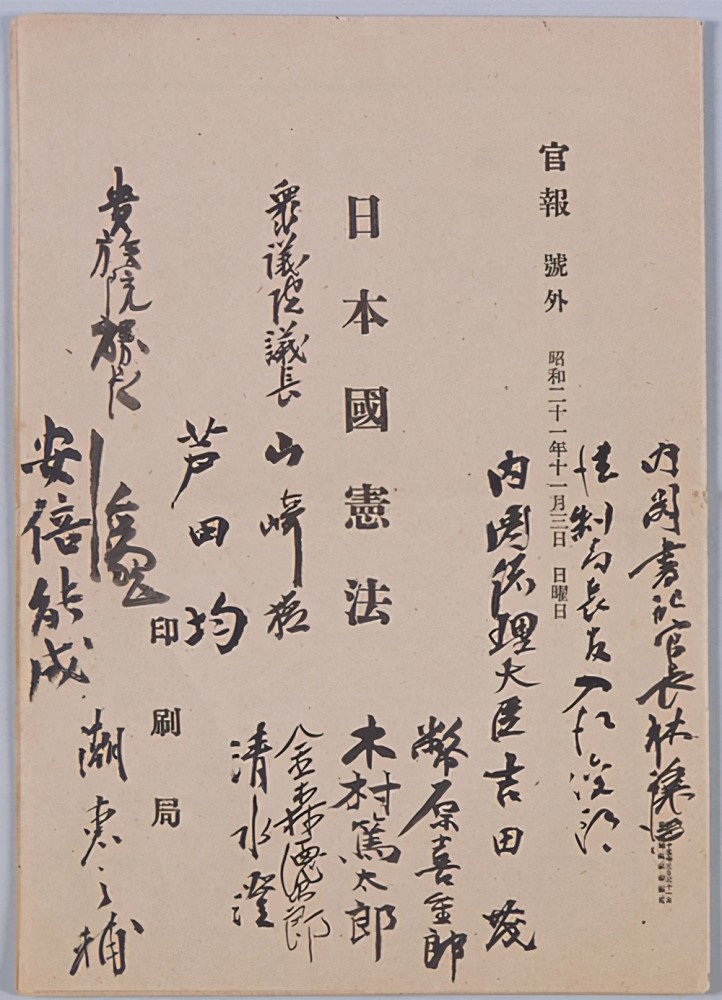 内閣書記官長林譲治
法制局長官入江俊郎
官報 號外 昭和二十一年十一月三日 日曜日
内閣総理大臣吉田茂
幣原喜重郎
日本國憲法
木村篤太郎
衆議院議長 山崎猛
金森徳次郎
清水澄
芦田均
印刷局
貴族院議長
潮恵之輔
安倍能成